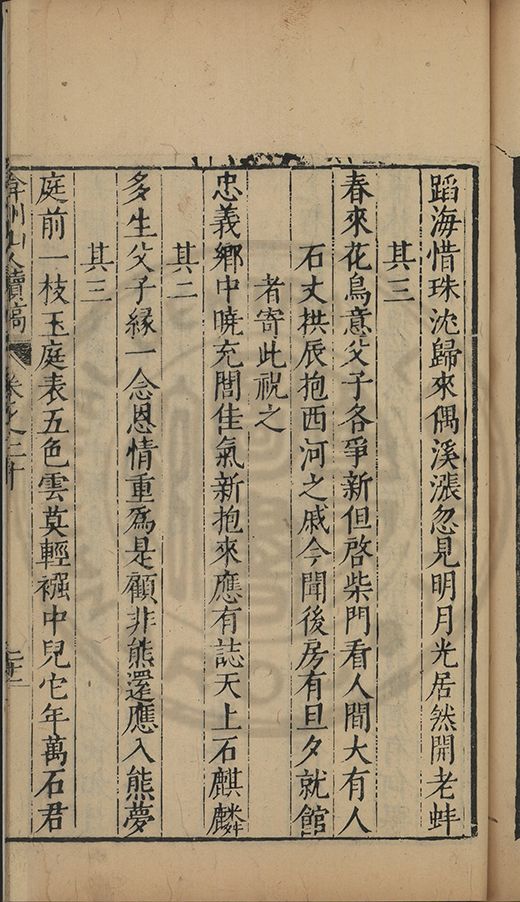 蹈海惜珠沈歸來偶溪漲忽見明月光居然開老蚌
其三
春來花鳥意父子各爭新但啓柴門看人間大有人
石丈拱辰抱西河之戚今聞後房有旦夕就館
者寄此祝之
忠義鄉中曉充閭佳氣新抱來應有誌天上石麒麟
其二
多生父子緣一念恩情重爲是顧非熊還應入熊夢
其三
庭前一枝玉庭表五色雲莫輕襁中兒它年萬石君
弇州山人續稿 卷之二十